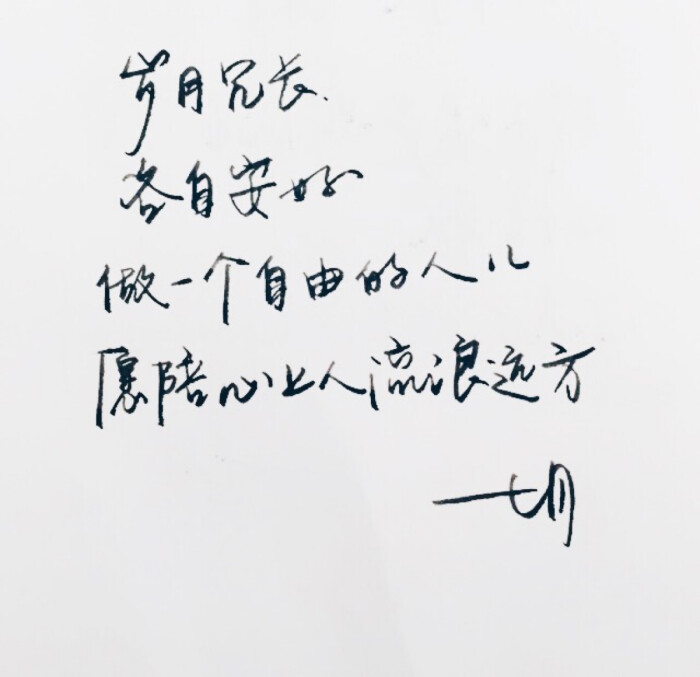 岁月冗长.
各自安好
做一个自由的人儿
愿陪心上人流浪远方
——七月